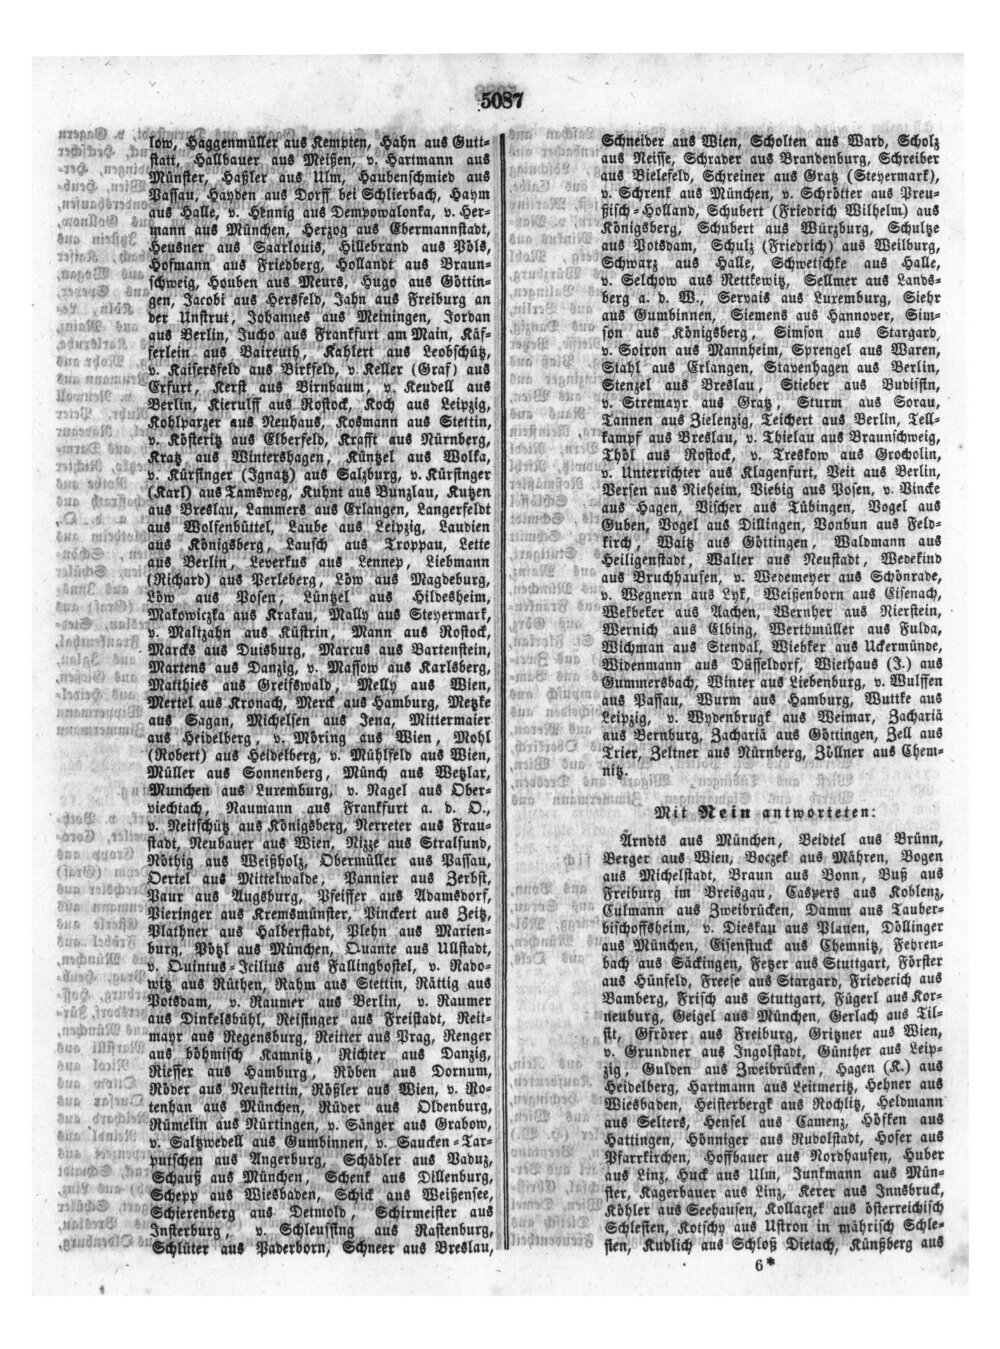 5087
low, Haggenmüller aus Kempten, Hahn aus Gutt-
statt, Hallbauer aus Meißen, v. Hartmann aus
Münster, Haßler aus Ulm, Haubenschmied aus
Passau, Hayden aus Dorff bei Schlierbach, Haym
aus Halle, v. Hennig aus Dempowalonka, v. Her-
mann aus München, Herzog aus Ebermannstadt,
Heusner aus Saarlouis, Hillebrand aus Pöls,
Hofmann aus Friedberg, Hollandt aus Braun-
schweig, Houben aus Meurs, Hugo aus Götting-
gen, Jacobi aus Hersfeld, Jahn aus Freiburg an
der Unstrut, Johannes aus Meiningen, Jordan
aus Berlin, Jucho aus Frankfurt am Main, Käf-
ferlein aus Baireuth, Kahlert aus Leobschütz,
v. Kaisersfeld aus Birkfeld, v. Keller (Graf) aus
Erfurt, Kerst aus Birnbaum, v. Keudell aus
Berlin, Kierulff aus Rostock, Koch aus Leipzig,
Kohlparzer aus Neuhaus, Kosmann aus Stettin,
v. Kösteritz aus Elberfeld, Krafft aus Nürnberg,
Kratz aus Wintershagen, Künzel aus Wolka,
v. Kürsinger (Ignatz) aus Salzburg, v. Kürsinger
(Karl) aus Tamsweg, Kuhnt aus Bunzlau, Kutzen
aus Breslau, Lammers aus Erlangen, Langerfeldt
aus Wolfenbüttel, Laube aus Leipzig, Laudien
aus Königsberg, Lausch aus Troppau, Lette
aus Berlin, Leverkus aus Lennep, Liebmann
(Richard) aus Perleberg, Löw aus Magdeburg,
Löw aus Posen, Lüntzel aus Hildesheim,
Makowiczka aus Krakau, Mally aus Steyermark,
v. Maltzahn aus Küstrin, Mann aus Rostock,
Marcks aus Duisburg, Marcus aus Bartenstein,
Martens aus Danzig, v. Massow aus Karlsberg,
Matthies aus Greifswald, Melly aus Wien,
Mertel aus Kronach, Merck aus Hamburg, Metzke
aus Sagan, Michelsen aus Jena, Mittermaier
aus Heidelberg, v. Möring aus Wien, Mohl
(Robert) aus Heidelberg, v. Mühlfeld aus Wien,
Müller aus Sonnenberg, Münch aus Wetzlar,
Munchen aus Luxemburg, v. Nagel aus Ober-
viechtach, Naumann aus Frankfurt a. d. O.,
v. Neitschütz aus Königsberg, Nerreter aus Frau-
stadt, Neubauer aus Wien, Nizze aus Stralsund,
Nöthig aus Weißholz, Obermüller aus Passau,
Oertel aus Mittelwalde, Pannier aus Zerbst,
Paur aus Augsburg, Pfeiffer aus Adamsdorf,
Pieringer aus Kremsmünster, Pinckert aus Zeitz,
Plathner aus Halberstadt, Plehn aus Marien-
burg, Pötzl aus München, Quante aus Ullstadt,
v. Quintus-Icilius aus Fallingbostel, v. Rado-
witz aus Rüthen, Rahm aus Stettin, Rättig aus
Potsdam, v. Raumer aus Berlin, v. Raumer
aus Dinkelsbühl, Reisinger aus Freistadt, Reit-
mayr aus Regensburg, Reitter aus Prag, Renger
aus böhmisch Kamnitz, Richter aus Danzig,
Riesser aus Hamburg, Röben aus Dornum,
Röder aus Neustettin, Rößler aus Wien, v. Ro-
tenhan aus München, Rüder aus Oldenburg,
Rümelin aus Nürtingen, v. Sänger aus Grabow,
v. Saltzwedell aus Gumbinnen, v. Saucken-Tar-
putschen aus Angerburg, Schädler aus Vaduz,
Schauß aus München, Schenk aus Dillenburg,
Schepp aus Wiesbaden, Schick aus Weißensee,
Schierenberg aus Detmold, Schirmeister aus
Insterburg, v. Schleussing aus Rastenburg,
Schlüter aus Paderborn, Schneer aus Breslau,
Schneider aus Wien, Scholten aus Ward, Scholz
aus Neisse, Schrader aus Brandenburg, Schreiber
aus Bielefeld, Schreiner aus Gratz (Steyermark),
v. Schrenk aus München, v. Schrötter aus Preu-
ßisch-Holland, Schubert (Friedrich Wilhelm) aus
Königsberg, Schubert aus Würzburg, Schultze
aus Potsdam, Schulz (Friedrich) aus Weilburg,
Schwarz aus Halle, Schwetschke aus Halle,
v. Selchow aus Rettkewitz, Sellmer aus Lands-
berg a. d. W., Servais aus Luxemburg, Siehr
aus Gumbinnen, Siemens aus Hannover, Sim-
son aus Königsberg, Simson aus Stargard,
v. Soiron aus Mannheim, Sprengel aus Waren,
Stahl aus Erlangen, Stavenhagen aus Berlin,
Stenzel aus Breslau, Stieber aus Budissin,
v. Stremayr aus Gratz, Sturm aus Sorau,
Tannen aus Zielenzig, Teichert aus Berlin, Tell-
kampf aus Breslau, v. Thielau aus Braunschweig,
Thöl aus Rostock, v. Treskow aus Grocholin,
v. Unterrichter aus Klagenfurt, Veit aus Berlin,
Versen aus Nieheim, Viebig aus Posen, v. Vincke
aus Hagen, Vischer aus Tübingen, Vogel aus
Guben, Vogel aus Dillingen, Vonbun aus Feld-
kirch, Waitz aus Göttingen, Waldmann aus
Heiligenstadt, Walter aus Neustadt, Wedekind
aus Bruchhausen, v. Wedemeyer aus Schönrade,
v. Wegnern aus Lyk, Weißenborn aus Eisenach,
Wekbeker aus Aachen, Wernher aus Nierstein,
Wernich aus Elbing, Werthmüller aus Fulda,
Wichman aus Stendal, Wiebker aus Uckermünde,
Widenmann aus Düsseldorf, Wiethaus (J.) aus
Gummersbach, Winter aus Liebenburg, v. Wulffen
aus Passau, Wurm aus Hamburg, Wuttke aus
Leipzig, v. Wydenbrugk aus Weimar, Zachariä
aus Bernburg, Zachariä aus Göttingen, Zell aus
Trier, Zeltner aus Nürnberg, Zöllner aus Chem-
nitz.
Mit Nein antworteten:
Arndts aus München, Beidtel aus Brünn,
Berger aus Wien, Boczek aus Mähren, Bogen
aus Michelstadt, Braun aus Bonn, Buß aus
Freiburg im Breisgau, Caspers aus Koblenz,
Culmann aus Zweibrücken, Damm aus Tauber-
bischoffsheim, v. Dieskau aus Plauen, Döllinger
aus München, Eisenstuck aus Chemnitz, Fehren-
bach aus Säckingen, Fetzer aus Stuttgart, Förster
aus Hünfeld, Freese aus Stargard, Friederich aus
Bamberg, Frisch aus Stuttgart, Fügerl aus Kor-
neuburg, Geigel aus München, Gerlach aus Til-
sit, Gfrörer aus Freiburg, Gritzner aus Wien,
v. Grundner aus Ingolstadt, Günther aus Leip-
zig, Gulden aus Zweibrücken, Hagen (K.) aus
Heidelberg, Hartmann aus Leitmeritz, Hehner aus
Wiesbaden, Heisterbergk aus Rochlitz, Heldmann
aus Selters, Hensel aus Camenz, Höfken aus
Hattingen, Hönniger aus Rudolstadt, Hofer aus
Pfarrkirchen, Hoffbauer aus Nordhausen, Huber
aus Linz, Huck aus Ulm, Junkmann aus Mün-
ster, Kagerbauer aus Linz, Kerer aus Innsbruck,
Köhler aus Seehausen, Kollaczek aus österreichisch
Schlesien, Kotschy aus Ustron in mährisch Schle-
sien, Kudlich aus Schloß Dietach, Künßberg aus
6*